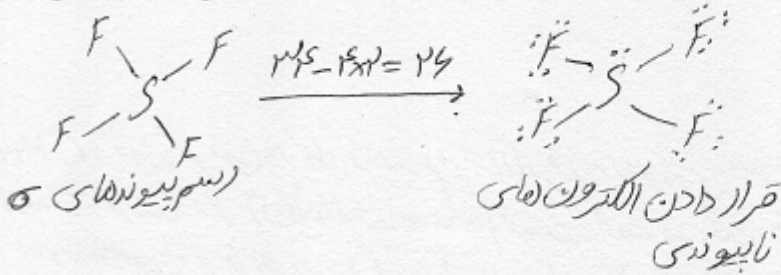 F F
S
F F
۳۴-۴×۲=۲۶
F F
S
F F
رسم پیوندهای σ
قرار دادن الکترون های
ناپیوندی